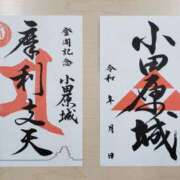 登閣記念
小田原城
摩利支天
小田原城
令和 年 月 日